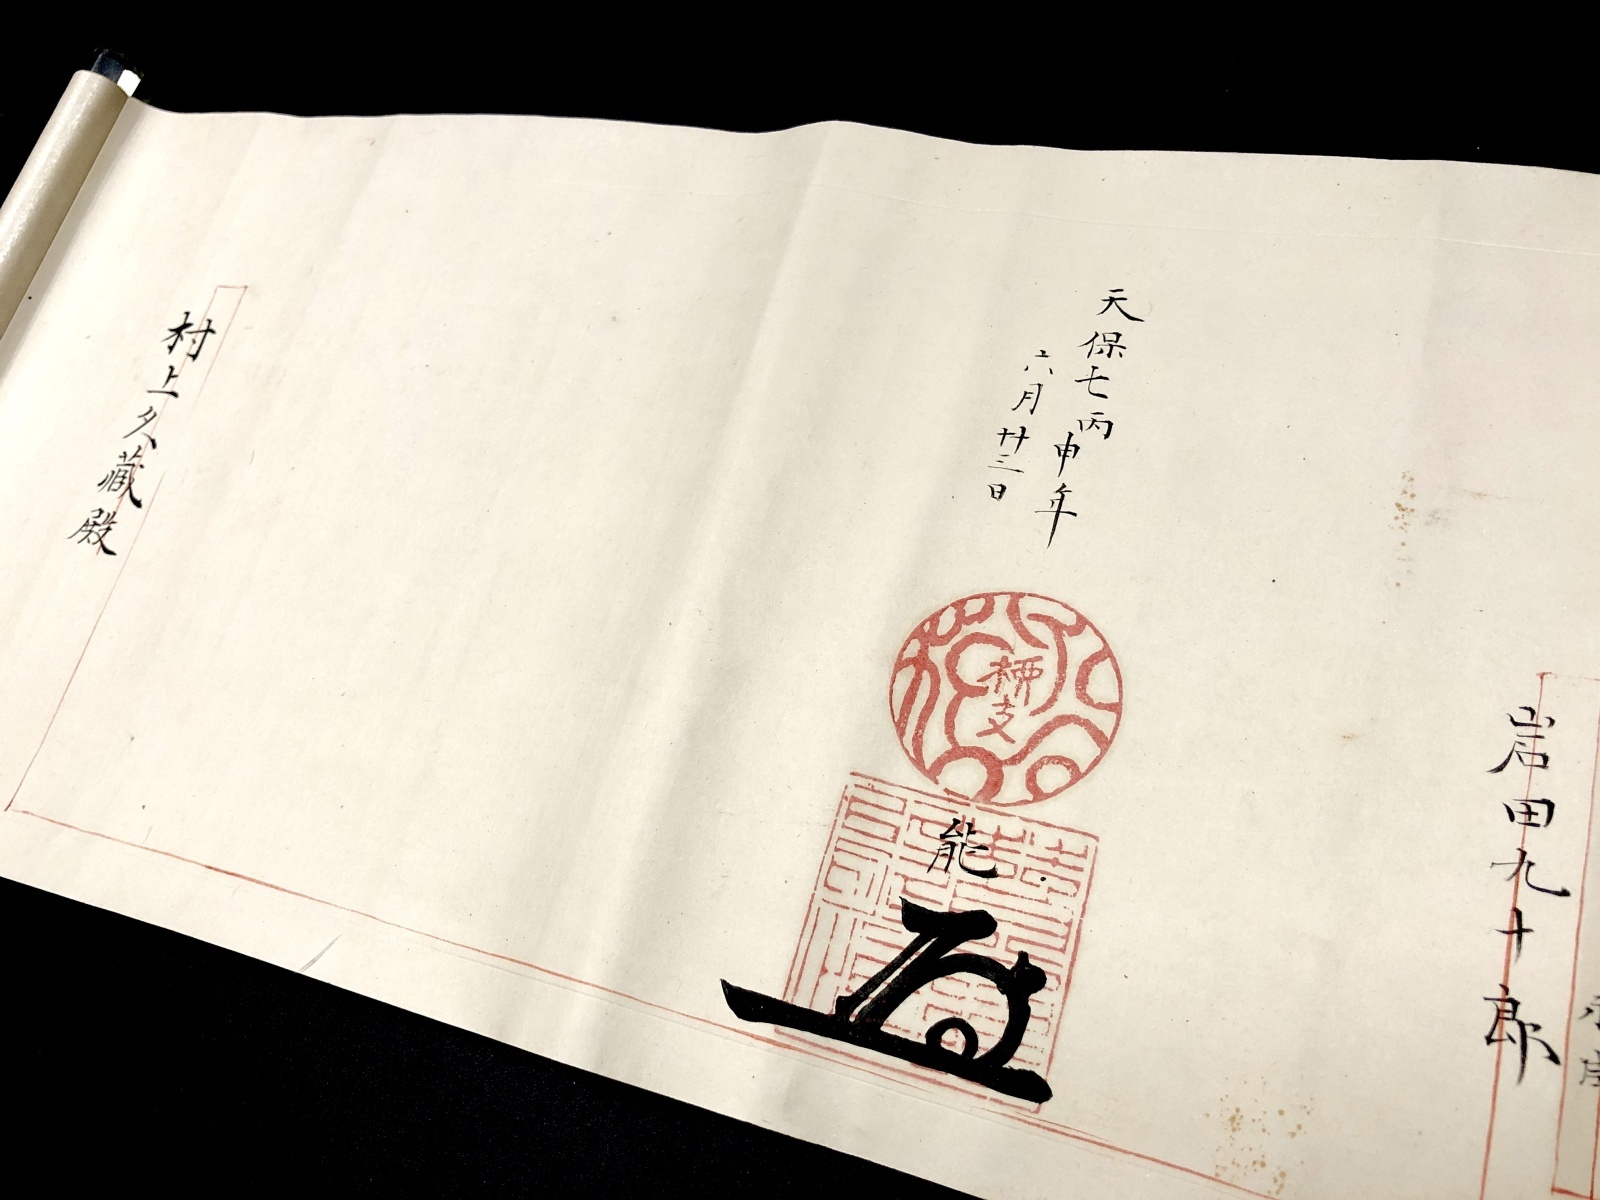 岩田九十郎
天保七丙申年
六月廿三日
能
村上久蔵殿